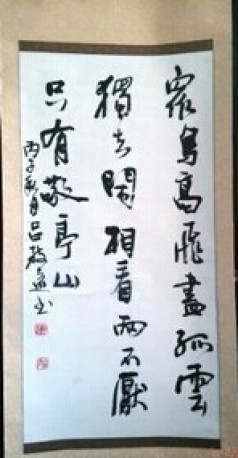 眾鳥高飛盡孤雲
獨去閒相看兩不厭
只有敬亭山
丙子秋月呂